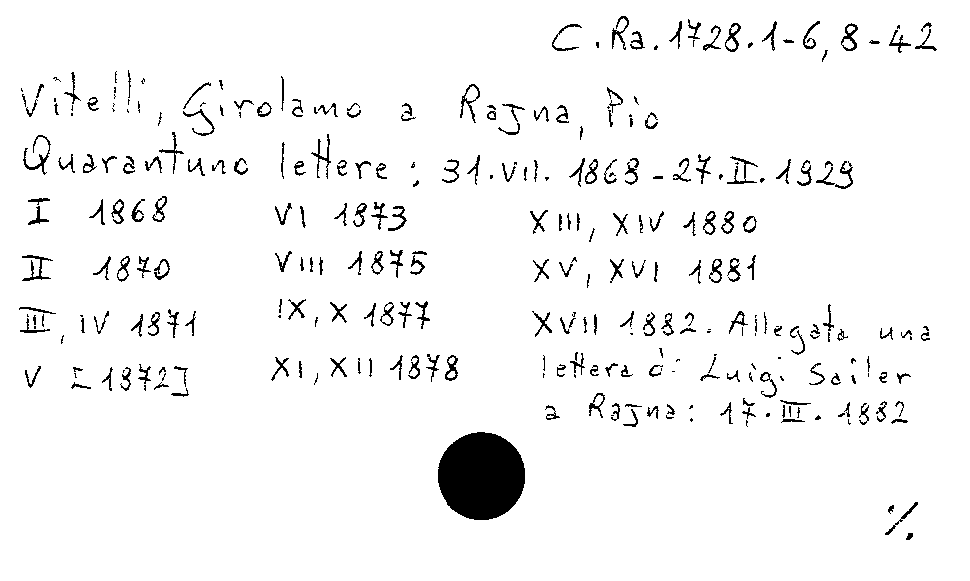 C.Ra.1728.1-6, 8-42
Vitelli, Girolamo a Rajna, Pio
Quarantuno lettere: 31.VII.1868-27.II.1929
I 1868
II 1870
III, IV 1871
V [1872]
VI 1873
VIII 1875
IX, X 1877
XI, XII 1878
XIII, XIV 1880
XV, XVI 1881
XVII 1882. Allegata una
lettera di Luigi Sailer
a Rajna: 17.III.1882
%.